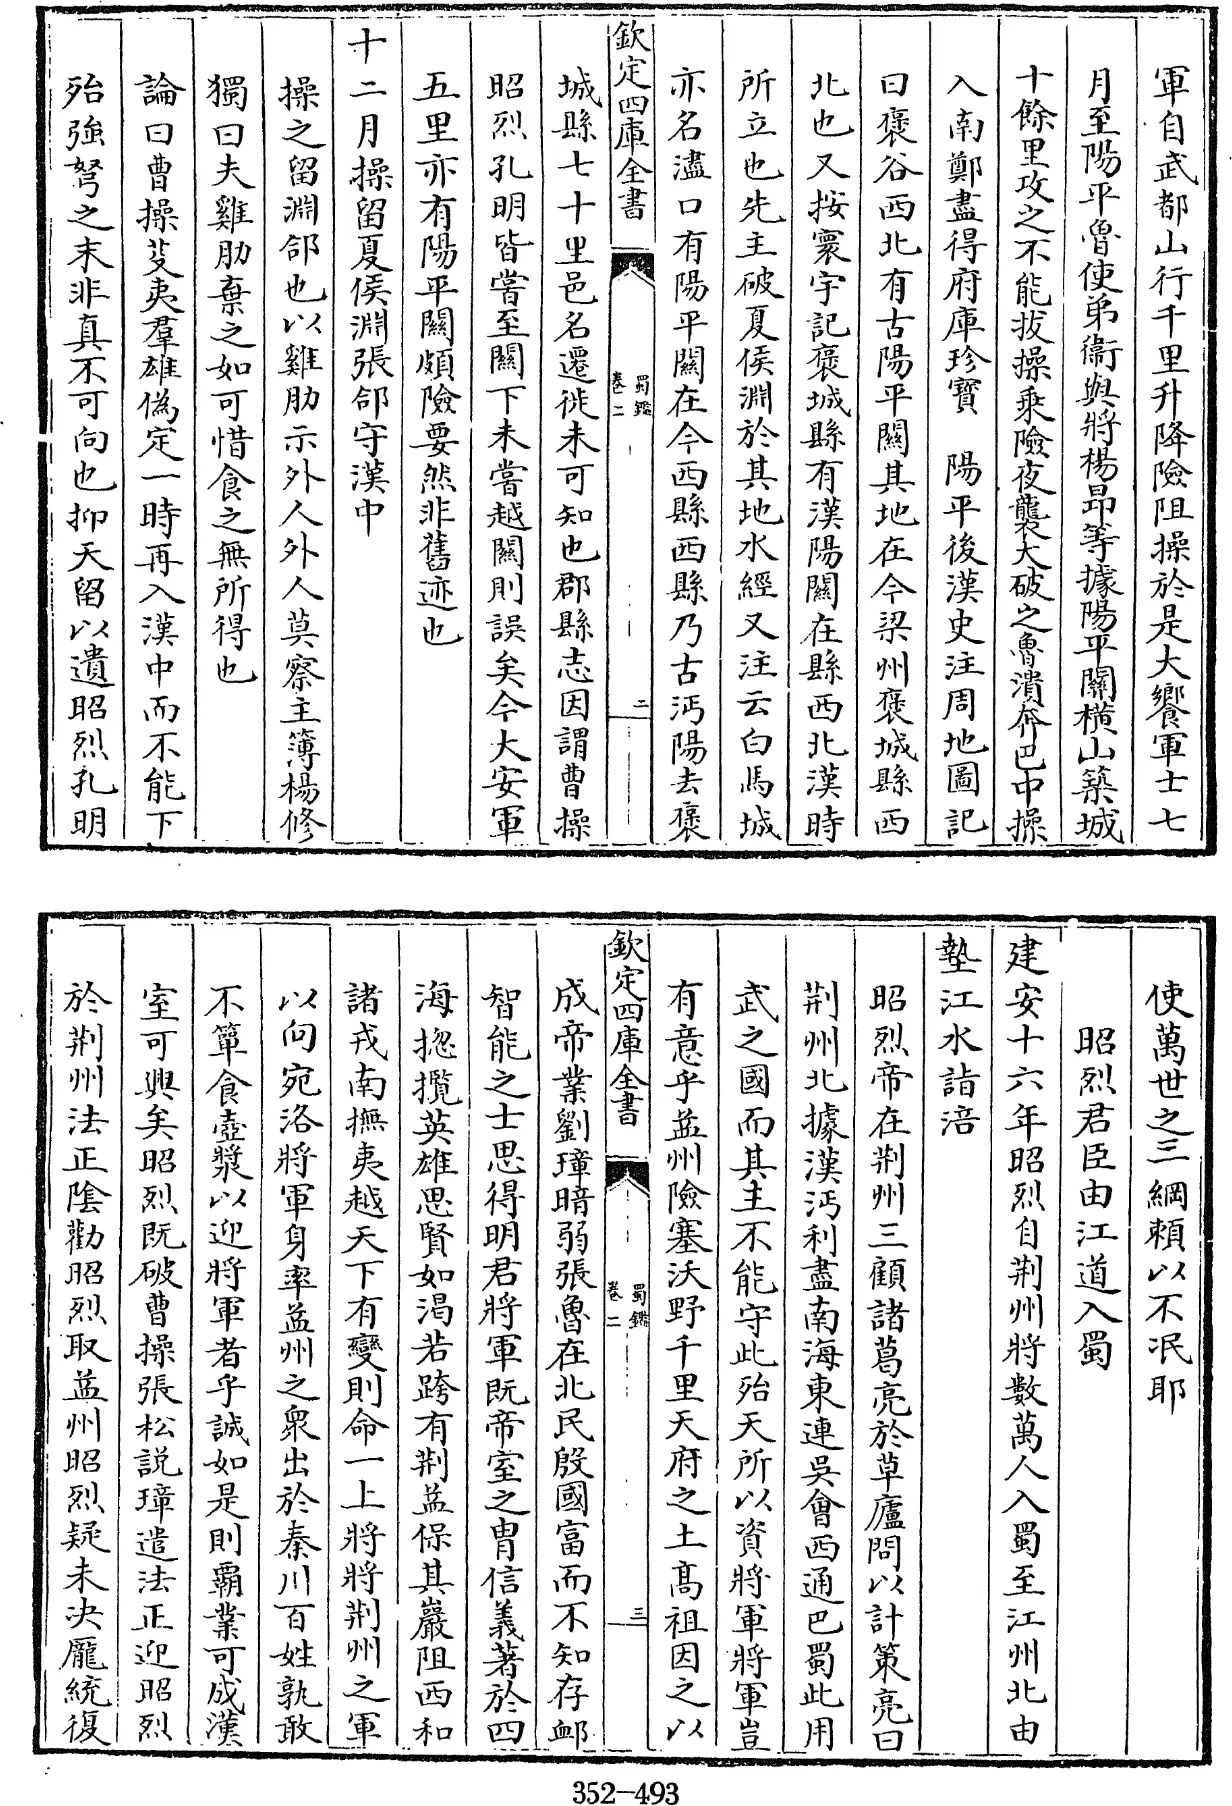 軍自武都山行千里升降險阻操於是大饗軍士七
月至陽平魯使弟衞與將楊昂等據陽平關橫山築城
十餘里攻之不能拔操乗險夜襲大破之魯潰奔巴中操
入南鄭盡得府庫珍寳　陽平後漢史注周地圖記
曰褒谷西北有古陽平關其地在今梁州褒城縣西
北也又按寰宇記褒城縣有漢陽關在縣西北漢時
所立也先主破夏侯淵於其地水經又注云白馬城
亦名濜口有陽平關在今西縣西縣乃古沔陽去褒
欽定四庫全書
蜀鑑
卷二
二
城縣七十里邑名遷徙未可知也郡縣志因謂曹操
昭烈孔明皆嘗至關下未嘗越關則誤矣今大安軍
五里亦有陽平關頗險要然非舊迹也
十二月操留夏侯淵張郃守漢中
操之留淵郃也以雞肋示外人外人莫察主簿楊修
獨曰夫雞肋棄之如可惜食之無所得也
論曰曹操芟夷羣雄僞定一時再入漢中而不能下
殆強弩之末非真不可向也抑天留以遺昭烈孔明
使萬世之三綱賴以不泯耶
昭烈君臣由江道入蜀
建安十六年昭烈自荆州將數萬人入蜀至江州北由
墊江水詣涪
昭烈帝在荆州三顧諸葛亮於草廬問以計策亮曰
荆州北據漢沔利盡南海東連吳會西通巴蜀此用
武之國而其主不能守此殆天所以資將軍將軍豈
有意乎益州險塞沃野千里天府之土髙祖因之以
欽定四庫全書
蜀鑑
卷二
三
成帝業劉璋暗弱張魯在北民殷國富而不知存衈
智能之士思得明君將軍既帝室之胄信義著於四
海揔攬英雄思賢如渴若跨有荆益保其巖阻西和
諸戎南撫夷越天下有變則命一上將將荆州之軍
以向宛洛將軍身率益州之衆出於秦川百姓孰敢
不簞食壺漿以迎將軍者乎誠如是則霸業可成漢
室可興矣昭烈既破曹操張松説璋遣法正迎昭烈
於荆州法正陰勸昭烈取益州昭烈疑未決龐統復
352-493